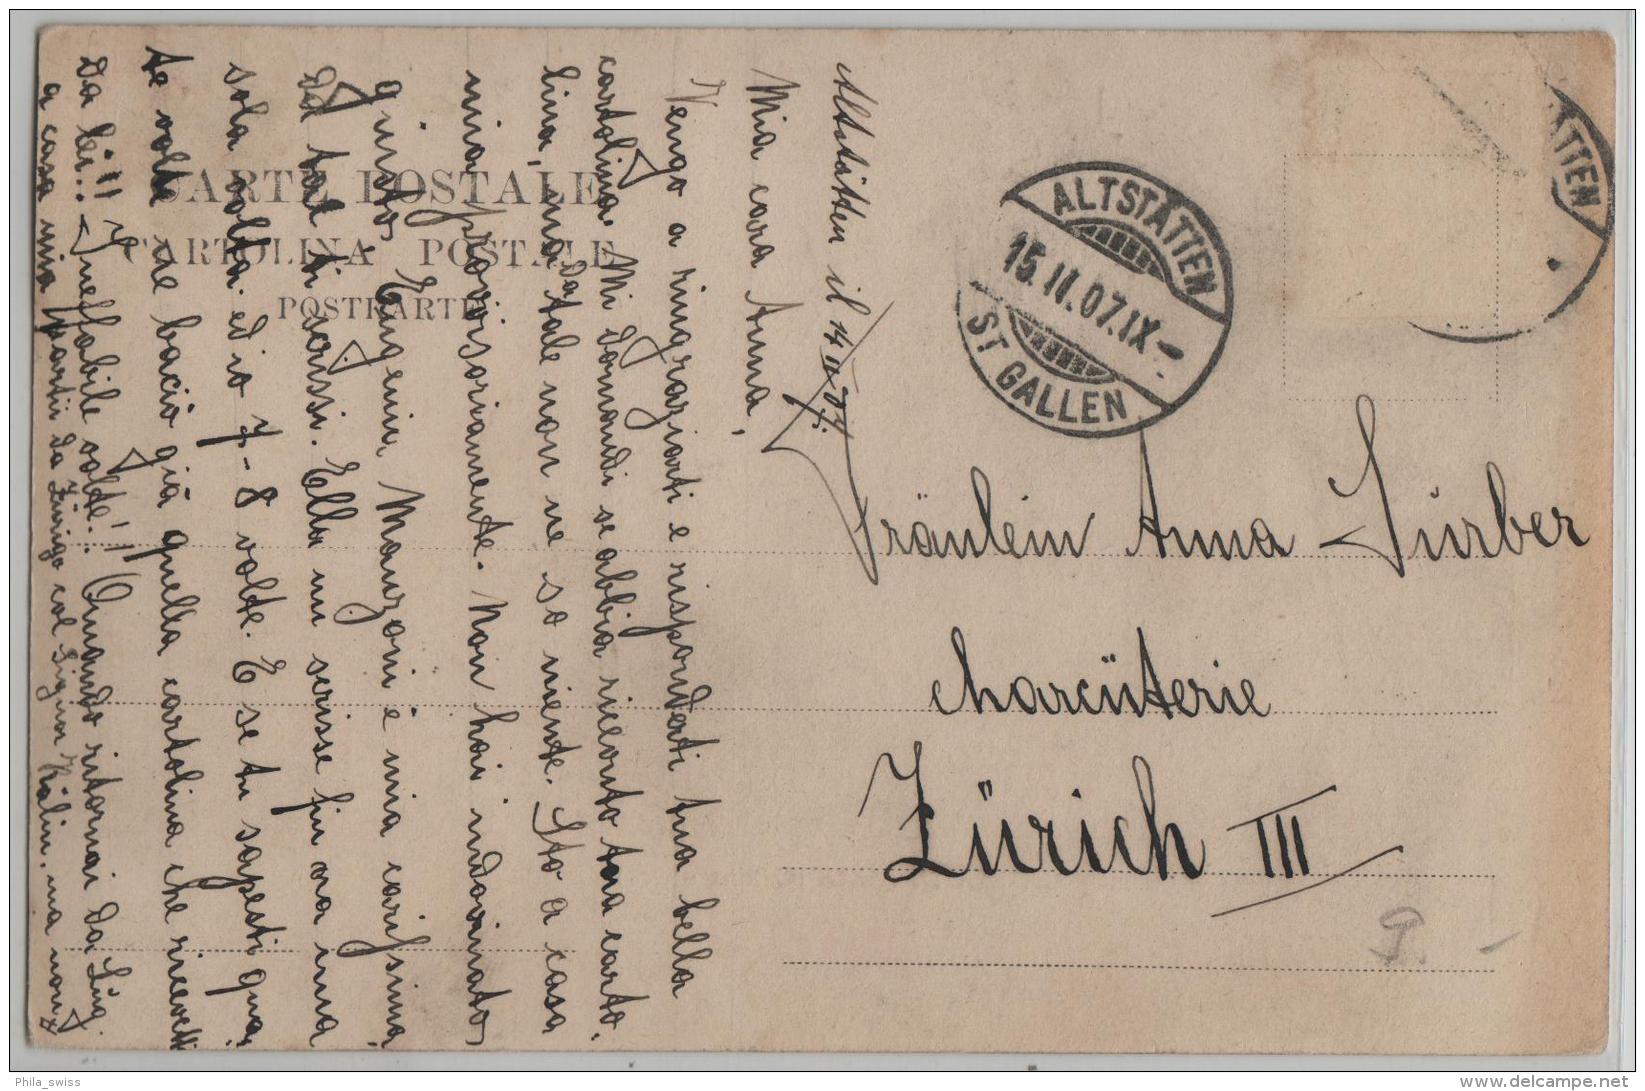 CARTE POSTALE
CARTOLINA POSTALE
POSTKARTE
ALTSTÄTTEN
15.II.07.IX-
ST GALLEN
ÄTTEN
Altstätten il 14/II 07.
Mia cara Anna,
Vengo a ringraziarti e risponderti tua bella
cartolina. Mi domandi se abbia ricevuto tua carto-
lina, ma da tale non ne so niente. Sto a casa
mia provvisoriamente. Non hai indovinato
giusto, Eugenii Manzoni è mia carissima
da tal ti scrissi. Ella mi scrisse fin ora una
sola volta ed io 7-8 volte. E se tu sapesti qua
te volte ne baciò già quella cartolina che ricevetti
da lei!! Ineffabile volte!! Quando ritornai da Lug.
a casa mia partii da Zürigo col Signor Kälin, ma non
Fräulein Anna Surber
charcüterie
Zürich III
P. -
Phila_swiss
www.delcampe.net